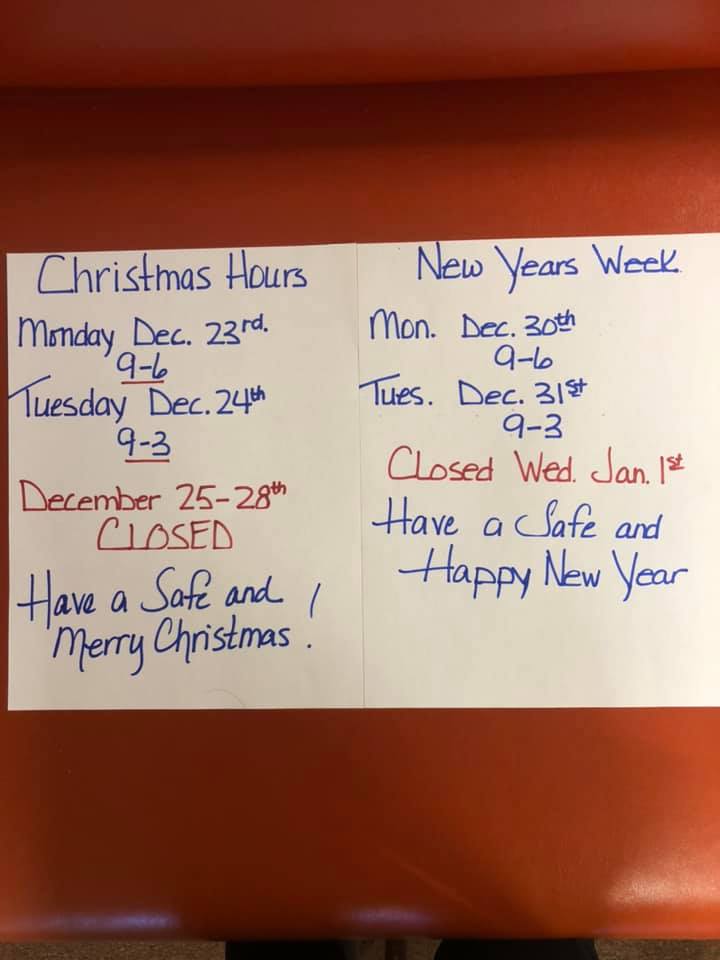 Christmas Hours
Monday Dec. 23rd.
9-6
Tuesday Dec. 24th
9-3
December 25-28th
CLOSED
Have a Safe and
Merry Christmas!
New Years Week.
Mon. Dec. 30th
9-6
Tues. Dec. 31st
9-3
Closed Wed. Jan. 1st
Have a Safe and
Happy New Year